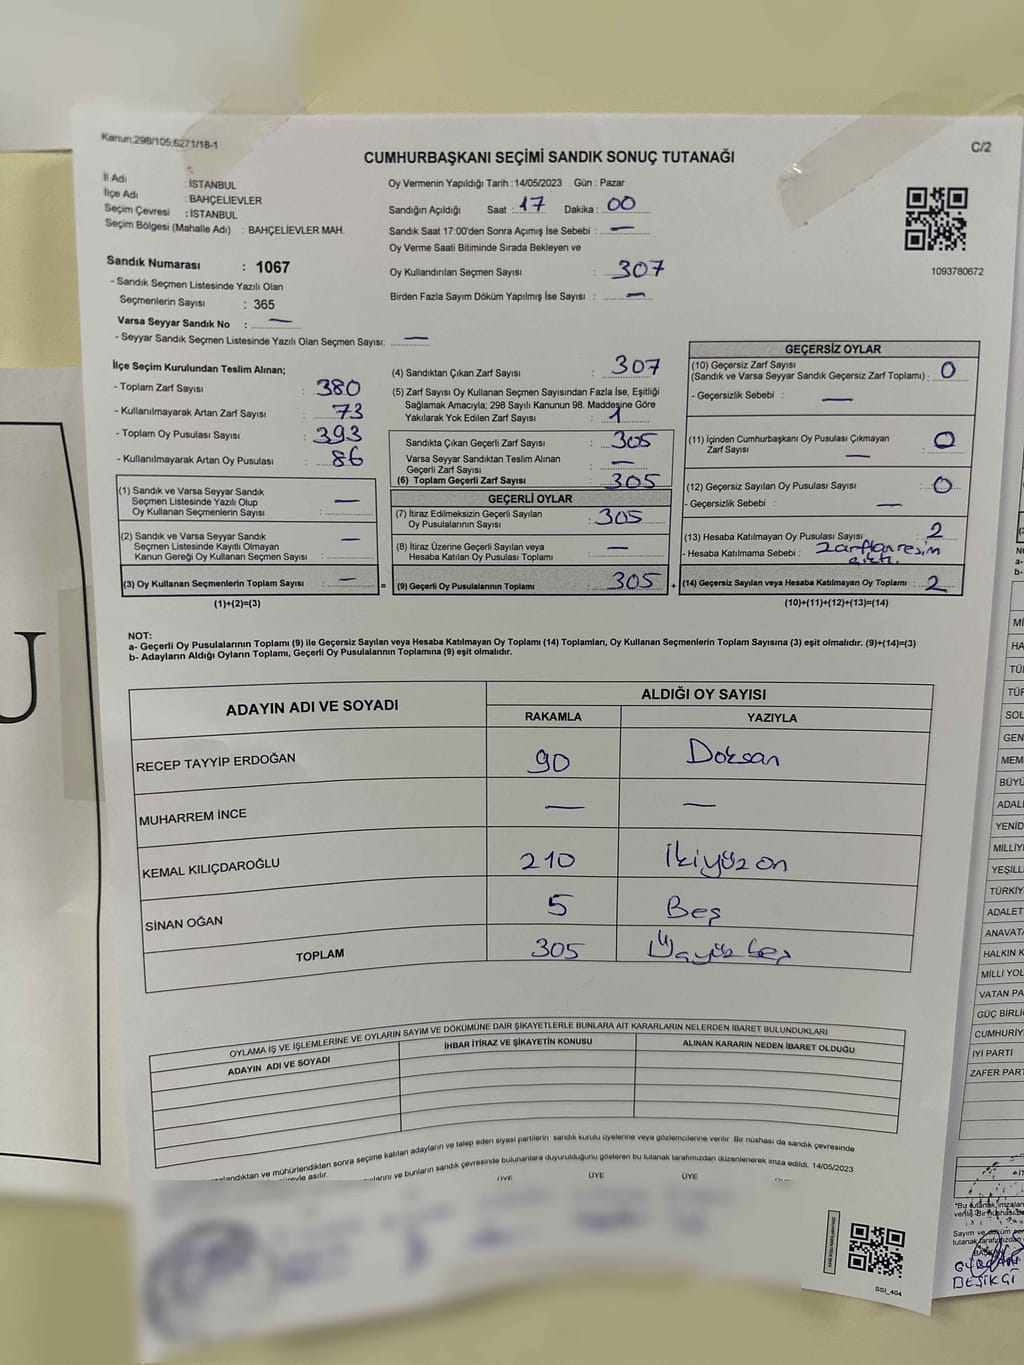 Kanun;298/105,6271/18-1
C/2
CUMHURBAŞKANI SEÇİMİ SANDIK SONUÇ TUTANAĞI
İl Adı : İSTANBUL
İlçe Adı : BAHÇELİEVLER
Seçim Çevresi : İSTANBUL
Seçim Bölgesi (Mahalle Adı) : BAHÇELİEVLER MAH.
Sandık Numarası : 1067
- Sandık Seçmen Listesinde Yazılı Olan
Seçmenlerin Sayısı : 365
Varsa Seyyar Sandık No : —
- Seyyar Sandık Seçmen Listesinde Yazılı Olan Seçmen Sayısı: —
Oy Vermenin Yapıldığı Tarih : 14/05/2023 Gün : Pazar
Sandığın Açıldığı Saat : 17 Dakika : 00
Sandık Saat 17:00'den Sonra Açımış İse Sebebi : —
Oy Verme Saati Bitiminde Sırada Bekleyen ve
Oy Kullandırılan Seçmen Sayısı : 307
Birden Fazla Sayım Döküm Yapılmış İse Sayısı : —
1093780672
İlçe Seçim Kurulundan Teslim Alınan;
- Toplam Zarf Sayısı : 380
- Kullanılmayarak Artan Zarf Sayısı : 73
- Toplam Oy Pusulası Sayısı : 393
- Kullanılmayarak Artan Oy Pusulası : 86
(1) Sandık ve Varsa Seyyar Sandık
Seçmen Listesinde Yazılı Olup
Oy Kullanan Seçmenlerin Sayısı : —
(2) Sandık ve Varsa Seyyar Sandık
Seçmen Listesinde Kayıtlı Olmayan
Kanun Gereği Oy Kullanan Seçmen Sayısı : —
(3) Oy Kullanan Seçmenlerin Toplam Sayısı : —
(1)+(2)=(3)
(4) Sandıktan Çıkan Zarf Sayısı : 307
(5) Zarf Sayısı Oy Kullanan Seçmen Sayısından Fazla İse, Eşitliği
Sağlamak Amacıyla; 298 Sayılı Kanunun 98. Maddesine Göre
Yakılarak Yok Edilen Zarf Sayısı : 1
Sandıkta Çıkan Geçerli Zarf Sayısı : 305
Varsa Seyyar Sandıktan Teslim Alınan
Geçerli Zarf Sayısı : —
(6) Toplam Geçerli Zarf Sayısı : 305
GEÇERLİ OYLAR
(7) İtiraz Edilmeksizin Geçerli Sayılan
Oy Pusulalarının Sayısı : 305
(8) İtiraz Üzerine Geçerli Sayılan veya
Hesaba Katılan Oy Pusulası Toplamı : —
= (9) Geçerli Oy Pusulalarının Toplamı : 305 +
GEÇERSİZ OYLAR
(10) Geçersiz Zarf Sayısı
(Sandık ve Varsa Seyyar Sandık Geçersiz Zarf Toplamı) : 0
- Geçersizlik Sebebi : —
(11) İçinden Cumhurbaşkanı Oy Pusulası Çıkmayan
Zarf Sayısı — : 0
(12) Geçersiz Sayılan Oy Pusulası Sayısı : 0
- Geçersizlik Sebebi : —
(13) Hesaba Katılmayan Oy Pusulası Sayısı : 2
- Hesaba Katılmama Sebebi : 2 zarftan resim
çıktı.
(14) Geçersiz Sayılan veya Hesaba Katılmayan Oy Toplamı : 2
(10)+(11)+(12)+(13)=(14)
NOT:
a- Geçerli Oy Pusulalarının Toplamı (9) ile Geçersiz Sayılan veya Hesaba Katılmayan Oy Toplamı (14) Toplamları, Oy Kullanan Seçmenlerin Toplam Sayısına (3) eşit olmalıdır. (9)+(14)=(3)
b- Adayların Aldığı Oyların Toplamı, Geçerli Oy Pusulalarının Toplamına (9) eşit olmalıdır.
ADAYIN ADI VE SOYADI
ALDIĞI OY SAYISI
RAKAMLA YAZIYLA
RECEP TAYYİP ERDOĞAN 90 Doksan
MUHARREM İNCE — —
KEMAL KILIÇDAROĞLU 210 İkiyüz on
SİNAN OĞAN 5 Beş
TOPLAM 305 Üçyüz beş
OYLAMA İŞ VE İŞLEMLERİNE VE OYLARIN SAYIM VE DÖKÜMÜNE DAİR ŞİKAYETLERLE BUNLARA AİT KARARLARIN NELERDEN İBARET BULUNDUKLARI
ADAYIN ADI VE SOYADI İHBAR İTİRAZ VE ŞİKAYETİN KONUSU ALINAN KARARIN NEDEN İBARET OLDUĞU
sonra seçime katılan adayların ve talep eden siyasi partilerin sandık kurulu üyelerine veya gözlemcilerine verilir. Bir nüshası da sandık çevresinde
asılır. ve bunların sandık çevresinde bulunanlara duyurulduğunu gösteren bu tutanak tarafımızdan düzenlenerek imza edildi. 14/05/2023
ÜYE ÜYE ÜYE
SSI_404
U
SOL
GEN
MEM
BÜYÜ
ADAL
YENİD
MİLLİY
YEŞİLL
TÜRKİY
ADALET
ANAVATA
HALKIN K
MİLLİ YOL
VATAN PA
GÜÇ BİRLİ
CUMHURİY
İYİ PARTİ
ZAFER PART
BEŞİKÇİ